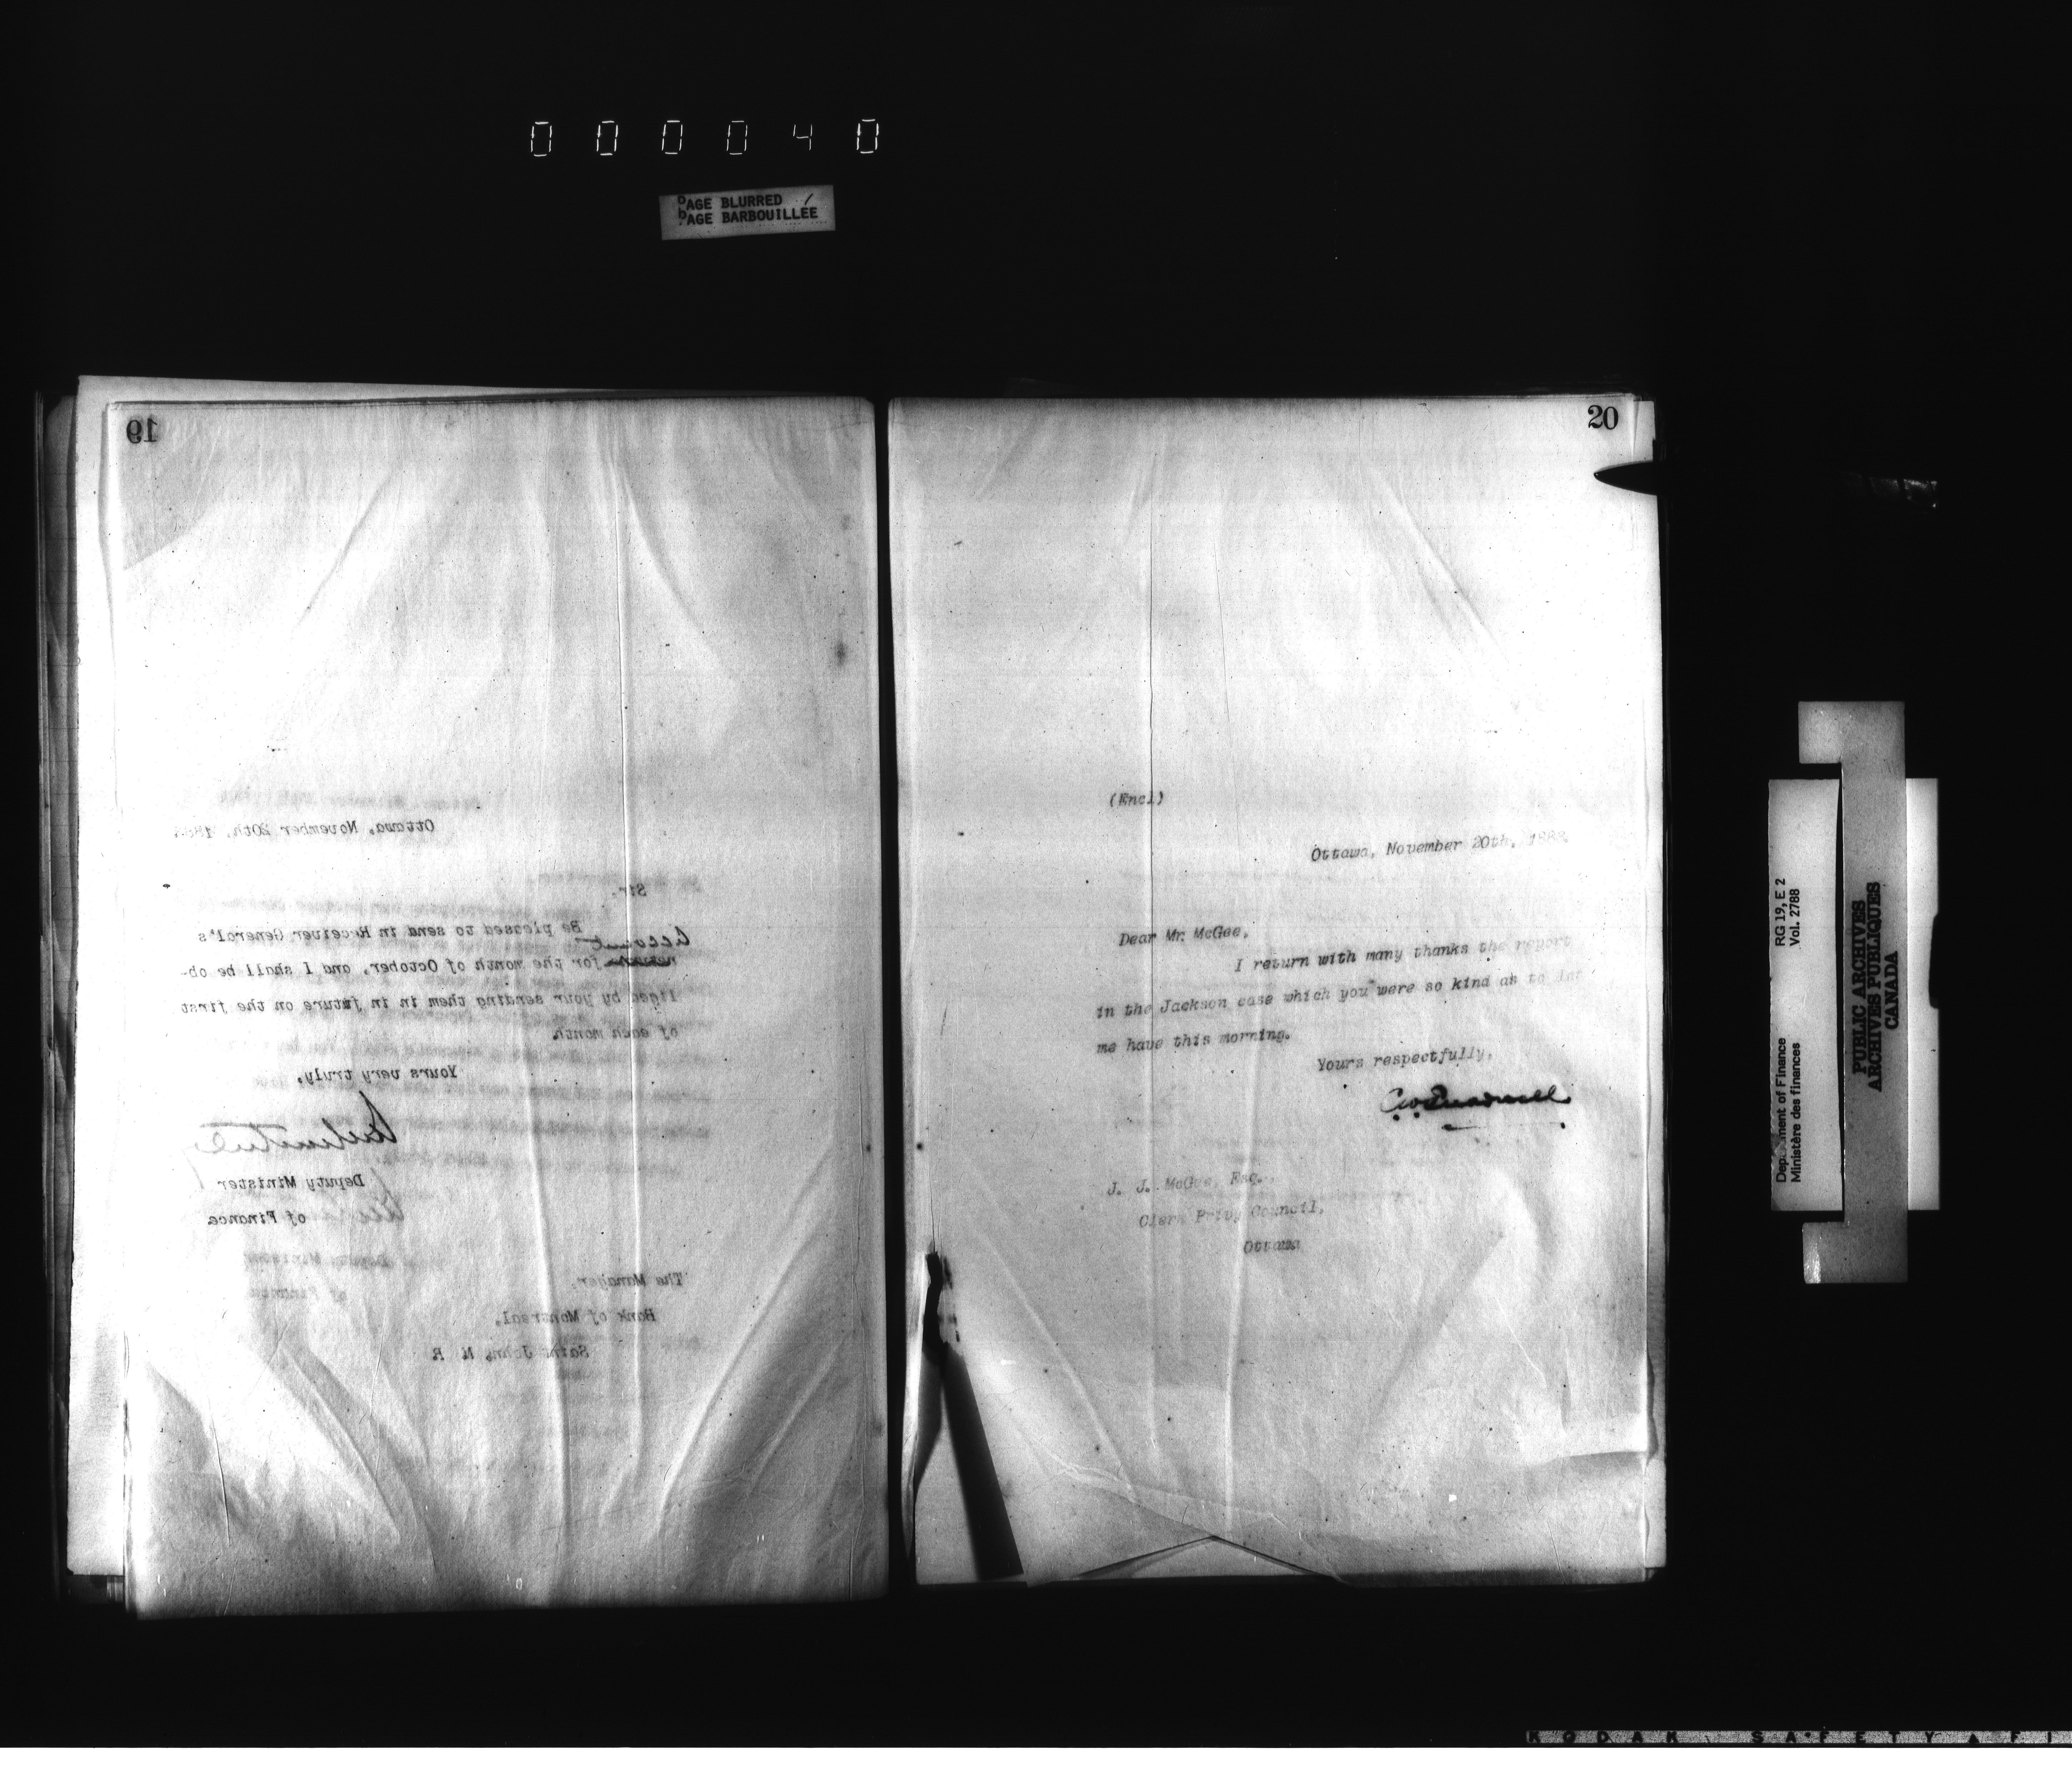 000040
PAGE BLURRED
PAGE BARBOUILLÉE
19
Ottawa, November 20th, 188
Sir,
Be pleased to send in Receiver General's
Account
return for the month of October, and I shall be ob-
liged by your sending them in in future on the first
of each month.
Yours very truly,
Deputy Minister
of Finance
The Manager,
Bank of Montreal,
Saint John, N B
20
(Encl)
Ottawa, November 20th, 1888.
Dear Mr. McGee,
I return with many thanks the report
in the Jackson case which you were so kind as to let
me have this morning.
Yours respectfully,
J. J. McGee, Esq.,
Clerk Privy Council,
Ottawa
RG 19, E 2
Vol. 2788
Department of Finance
Ministère des finances
PUBLIC ARCHIVES
ARCHIVES PUBLIQUES
CANADA
KODAK SAFETY FI